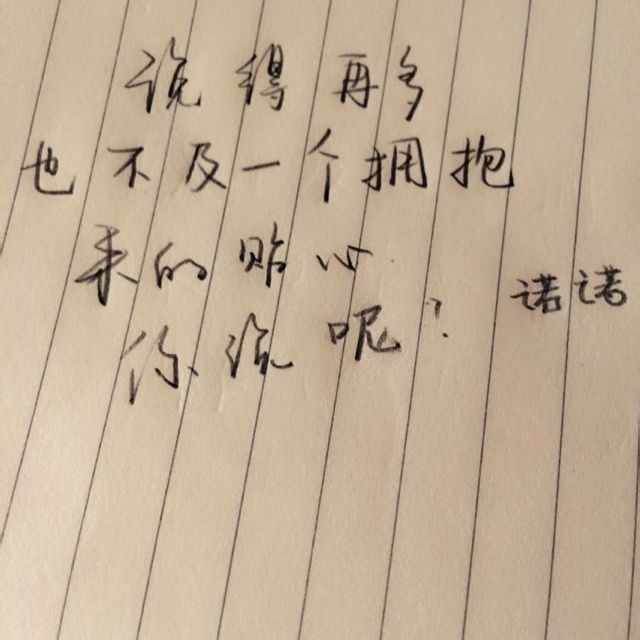 说得再多
也不及一个拥抱
来的贴心
你说呢？
诺诺